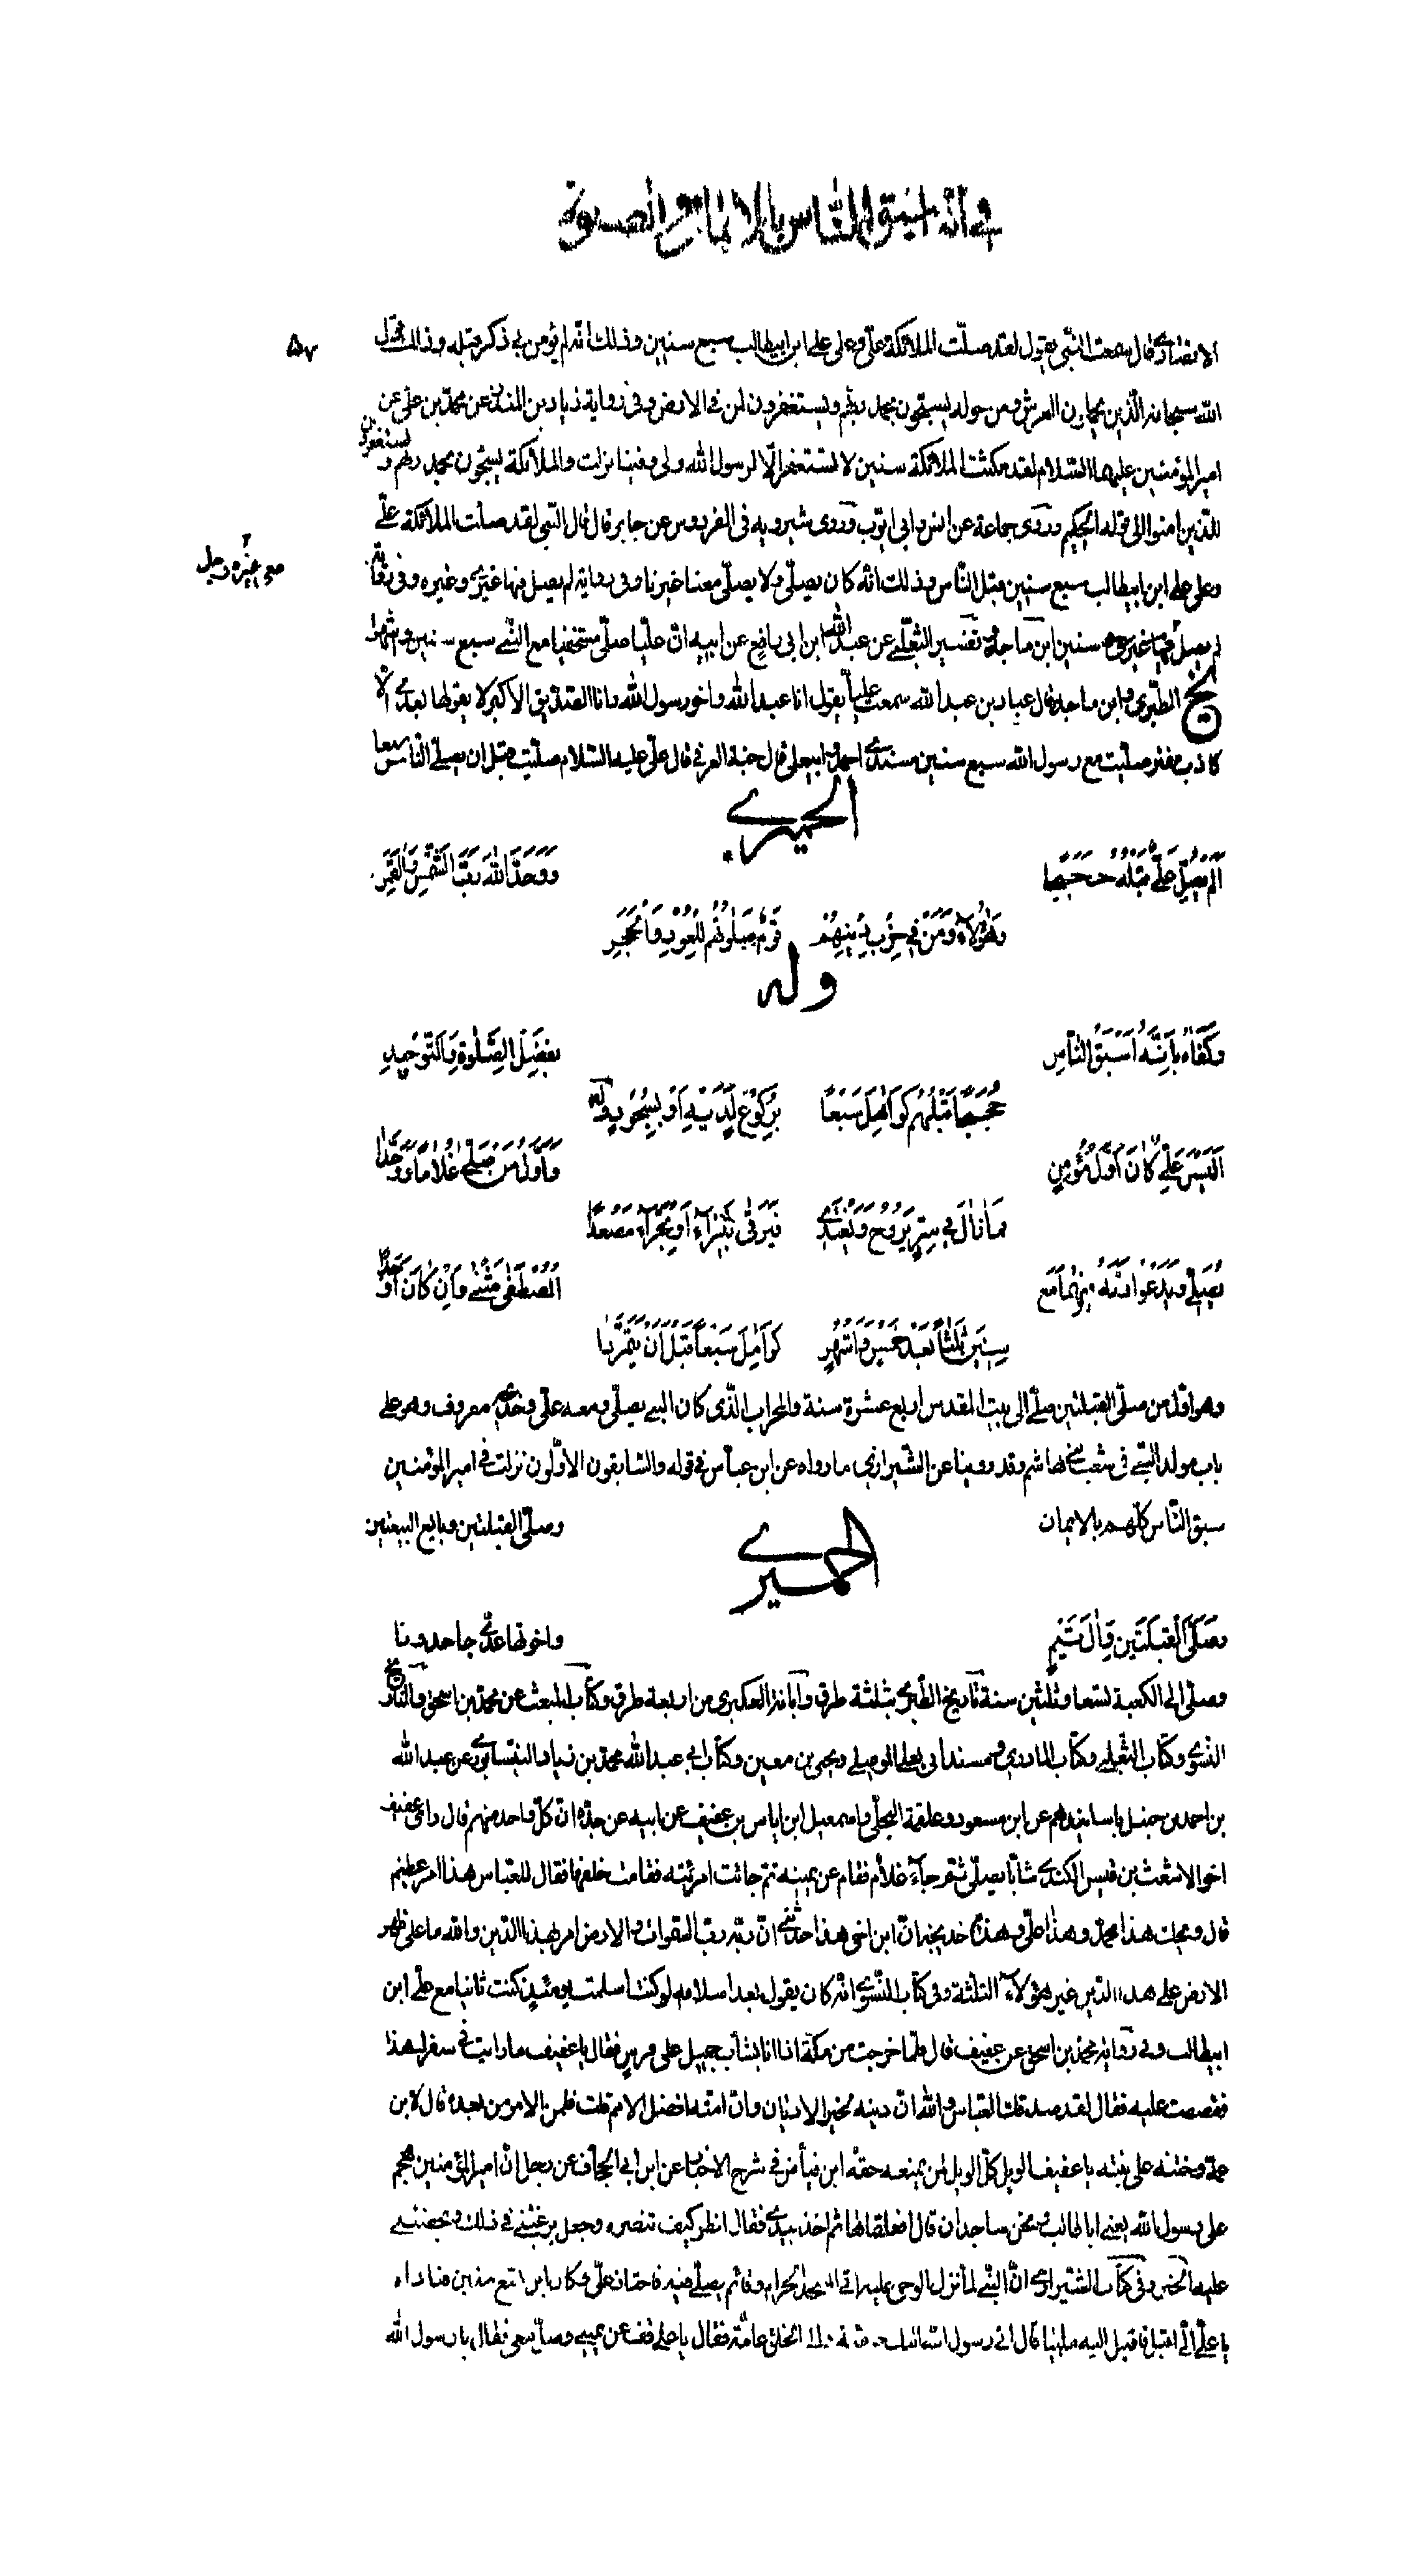 في انه اسبق الناس بالايمان والصلوة
٥٧
الانصاري قال سمعت النبي يقول لقد صلّت الملائكة عليّ وعلى علي ابن ابيطالب سبع سنين وذلك انه لم يؤمن بي ذكر قبله وذلك قول
الله سبحانه الذين يحملون العرش ومن حوله يسبحون بحمد ربهم ويستغفرون لمن في الارض وفي رواية زياد بن المنذر عن محمد بن علي عن
امير المؤمنين عليهما السلام لقد مكثت الملائكة سنين لا تستغفر الا لرسول الله ولي وفينا نزلت والملائكة يسبحون بحمد ربهم ويستغفرون
للذين امنوا الى قوله الحكيم وروى جماعة عن انس وابي ايوب وروى شيرويه في الفردوس عن جابر قال قال النبي لقد صلت الملائكة علي
وعلى علي ابن ابيطالب سبع سنين قبل الناس وذلك انه كان يصلّي ولا يصلّي معنا غيرنا وفي رواية لم يصل فيها غيري وغيره وفي رواية
مع غيره رجل
لم يصل فيها غيري وغيره سنين ابن ماجة وتفسير الثعلبي عن عبد الله ابن ابي رافع عن ابيه ان عليا صلى مستخفيا مع النبي سبع سنين واشهرا
تاريخ الطبري وابن ماجة قال عباد بن عبد الله سمعت عليا يقول انا عبد الله واخو رسول الله وانا الصديق الاكبر لا يقولها بعدي الا
كاذب مفتر صليت مع رسول الله سبع سنين مسندي احمد وابي يعلى قال حبة العرني قال علي عليه السلام صليت قبل ان يصلي الناس سبعا
الحميري
الم يصل علي قبلهم حججا ووحد الله رب الشمس والقمر
وهؤلاء ومن في حزب دينهم قوم صلوتهم للعود والحجر
وله
وكفاه بانه اسبق الناس بفضل الصلوة والتوحيد
حججا قبلهم كوامل سبعا بركوع لديه او بسجود وله
اليس علي كان اول مؤمن واول من صلى غلاما ووحدا
فما زال في سر يروح ويغتدي فيرقى ثبيرا او حراء مصعدا
يصلي ويدعو ربه فهما مع المصطفى مثنى وان كان اوحدا
سنين ثلاثا بعد خمس واشهر كوامل سبعا قبل ان يتمردا
وهو اول من صلى القبلتين صلى الى بيت المقدس اربع عشرة سنة والمحراب الذي كان النبي يصلي ومعه علي وخديجة معروف وهو على
باب مولد النبي في شعب بني هاشم وقد روينا عن الشيرازي ما رواه عن ابن عباس في قوله والسابقون الاولون نزلت في امير المؤمنين
سبق الناس كلهم بالايمان وصلى القبلتين وبايع البيعتين
الحميري
وصلى القبلتين وال تيم واخوتها عدي جاحدونا
وصلى الى الكعبة تسعا وثلثين سنة تاريخ الطبري بثلثة طرق وابانة العكبري من اربعة طرق وكتاب المبعث عن محمد بن اسحق والتاريخ
النسوي وكتاب الثعلبي وكتاب الماوردي ومسند ابي يعلى الموصلي ويحيى بن معين وكتاب ابي عبد الله محمد بن زياد النيسابوري عن عبد الله
بن احمد بن حنبل باسانيدهم عن ابن مسعود وعلقمة البجلي واسمعيل ابن اياس بن عفيف عن ابيه عن جده ان كل واحد منهم قال راى عفيف
اخو الاشعث بن قيس الكندي شابا يصلي ثم جاء غلام فقام عن يمينه ثم جائت امرئته فقامت خلفها فقال للعباس هذا امر عظيم
قال ويحك هذا محمد وهذا علي وهذه خديجة ان ابن اخي هذا حدثني ان ربه رب السموات والارض امر بهذا الدين والله ما على ظهر
الارض على هذا الدين غير هؤلاء الثلثة وفي كتاب النسوي انه كان يقول بعد اسلامه لو كنت اسلمت يومئذ كنت ثانيا مع علي ابن
ابيطالب وفي رواية محمد بن اسحق عن عفيف قال فلما خرجت من مكة اذا انا بشاب جميل على فرس فقال يا عفيف ما رايت في سفرك هذا
فقصصت عليه فقال لقد صدقك العباس والله ان دينه لخير الاديان وان امته افضل الامم قلت فلمن الامر من بعده قال لابن
عمه وختنه على بنته يا عفيف الويل كل الويل لمن يمنعه حقه ابن فياض في شرح الاخبار عن ابن ابي الجحاف عن رجل ان امير المؤمنين هجم
على رسول الله يعني ابا طالب ونحن ساجدان قال افعلتماها ثم اخذ بيدي فقال انظر كيف تنصره وجعل يرغبني في ذلك ويحضني
عليه الخبر وفي كتاب الشيرازي ان النبي لما نزل الوحي عليه اتى المسجد الحرام وقام يصلي فيه فاجتاز علي وكان ابن تسع سنين فناداه
يا علي الي اقبل فاقبل اليه ملبيا قال اني رسول الله اليك خاصة والى الخلق عامة فقال يا علي فقف عن يميني وصل معي فقال يا رسول الله